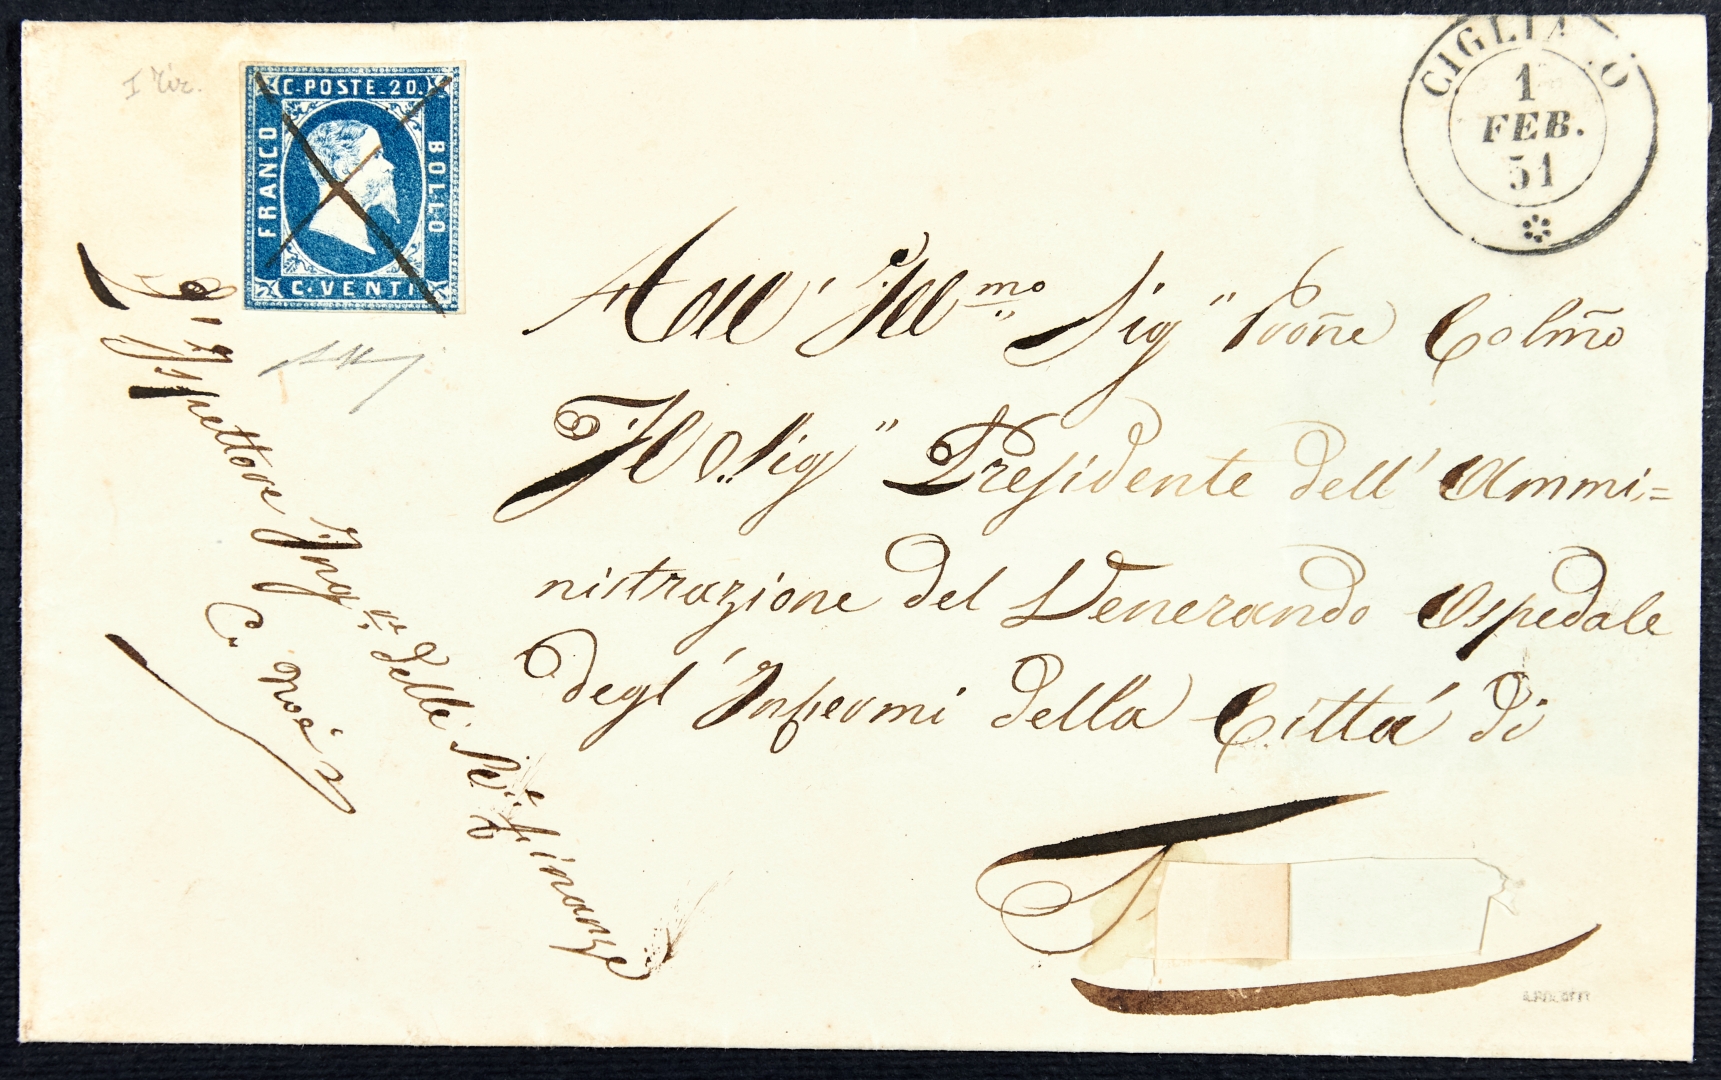 I Tir.
C. POSTE. 20.
FRANCO
BOLLO
C. VENTI
CIGLIANO
1
FEB.
51
All' Illmo Sig" Prone Colmo
Il Sig" Presidente dell' Ammi=
nistrazione del Venerando Ospedale
degl' Infermi della Città di
L'Ispettore Ingre delle Re Finanze
C. Noè